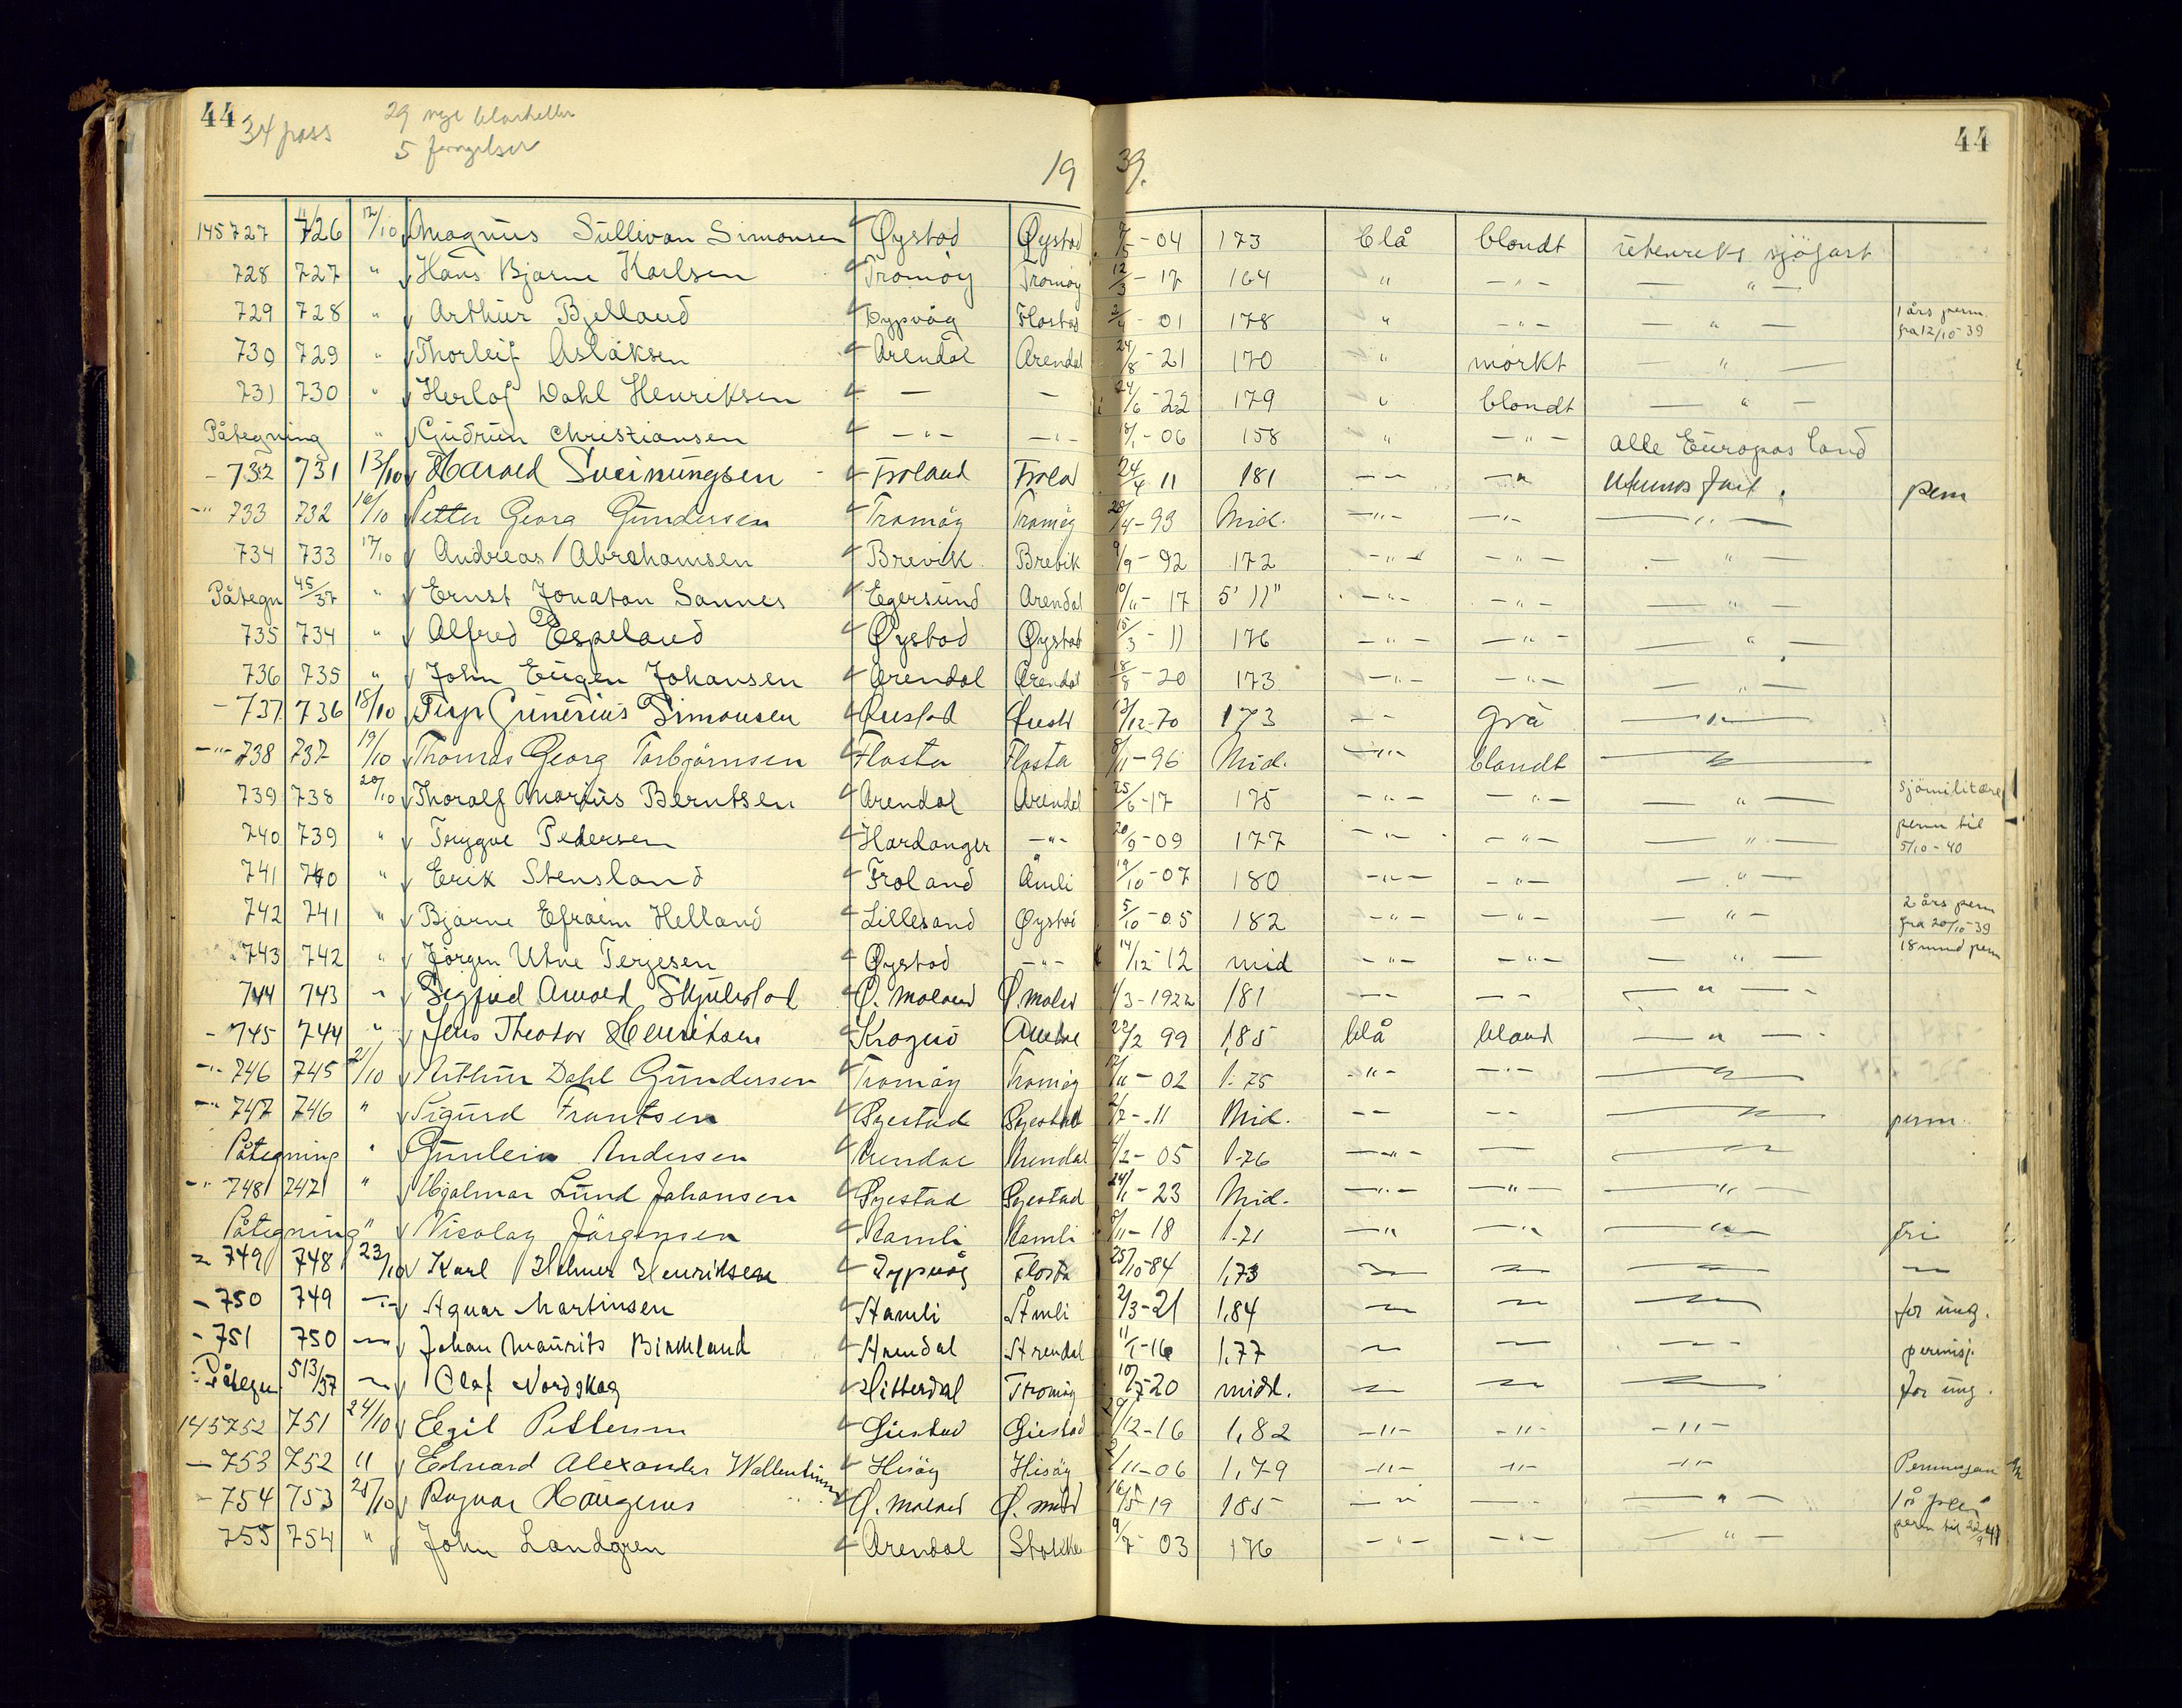 44 44
34 pass 29 nye blanketter
5 fornyelser
19 39.
145727 726 12/10 Magnus Sullivan Simonsen Øystad Øystad 7/5-04 173 blå blondt utenriks sjöfart
728 727 " Hans Bjarne Karlsen Tromöy Tromöy 12/3-17 164 " -"- -"-
729 728 " Arthur Bjelland Dypvåg Flosta 01 178 " -"- -"- 1 års perm. fra 12/10-39
730 729 " Thorleif Aslaksen Arendal Arendal 24/8-21 170 " mörkt -"-
731 730 " Herlof Dahl Henriksen - - 24/6-22 179 " blondt -"-
Påtegning " Gudrun Christiansen -"- -"- -06 158 " -"- alle Europas land
-732 731 13/10 Harald Sveinungsen Froland Frola 24/4 11 181 -"- -"- perm
-"-733 732 16/10 Petter Georg Gundersen Tromöy Tromöy 28/4-99 Mid. -"- -"- -"-
734 733 17/10 Andreas Abrahamsen Brevik Brevik 9/9-92 172 -"- -"- -"-
Påtegn 45/37 " Ernst Jonatan Sannes Egersund Arendal 10/11-17 5' 11" -"- -"- -"-
735 734 " Alfred Espeland Øystad Øystad 15/3-11 176 -"- -"- -"-
736 735 " John Eugen Johansen Arendal Arendal 18/8-20 173 -"- -"- -"-
-737 736 18/10 Simonsen 13/12-70 173 -"- grå -"-
-"-738 737 19/10 Thomas Georg Torbjörnsen Flosta Flosta 8/11-96 Mid. -"- blondt -"-
739 738 20/10 Thoralf Marius Berntsen Arendal Arendal 25/6-17 175 -"- -"- -"- sjömilitære
740 739 " Trygve Pedersen Hardanger -"- 20/9-09 177 -"- -"- -"- perm til 5/10-40
741 740 " Erik Stensland Froland Åmli 19/10-07 180 -"- -"- -"-
742 741 " Bjarne Efraim Helland Lillesand Øystad 5/10-05 182 -"- -"- -"- 2 års perm fra 20/10-39
743 742 " Jörgen Utne Terjesen Øystad -"- 14/12-12 mid -"- -"- -"- 18 mnd perm
744 743 " Sigfred Arnold Ø. Moland Ø. Moland 1/3-1922 181 -"- -"- -"-
-745 744 " Jens Theodor Henriksen Kragerö 22/2 99 1,85 blå blond -"-
-"-746 745 21/10 Arthur Dahl Gundersen Tromöy Tromöy 12/11-02 1.75 -"- -"- -"-
-"-747 746 " Sigurd Frantsen Øyestad Øyestad 2/7-11 Mid. -"- -"- -"- perm.
Påtegning " Gunleiv Andersen Arendal Arendal 4/2-05 1.76 -"- -"- -"-
-"-748 747 " Hjalmar Lund Johansen Øyestad Øyestad 24/1-23 Mid. -"- -"- -"-
Påtegning " Nicolay Jörgensen Aamli Aamli 8/11-18 1.71 -"- -"- -"- fri
-"-749 748 23/10 Karl Helmer Henriksen Dypvåg Flosta 25/10-84 1,73 -"- -"- -"- -"-
-750 749 -"- Agnar Martinsen Aamli Åmli 2/3-21 1,84 -"- -"- -"- for ung.
-751 750 -"- Johan Maurits Birkeland Arendal Arendal 11/1-16 1,77 -"- -"- -"- permisj.
Påtegn. 513/37 -"- Olaf Nordskog Hitterdal Tromöy 10/7-20 midd. -"- -"- -"- for ung.
145752 751 24/10 Egil Pettersen 29/12-16 1,82 -"- -"- -"-
-753 752 " Edvard Alexander Wallentinsen Hisöy Hisöy 2/11-06 1,79 -"- -"- -"-
-754 753 25/10 Ragnar Haugenes Ø. Moland Ø. Mold 16/5-19 185 -"- -"- -"-
755 754 " John Landgren Arendal Stokken 9/7 03 176 -"- -"- -"- perm til 22/9 41